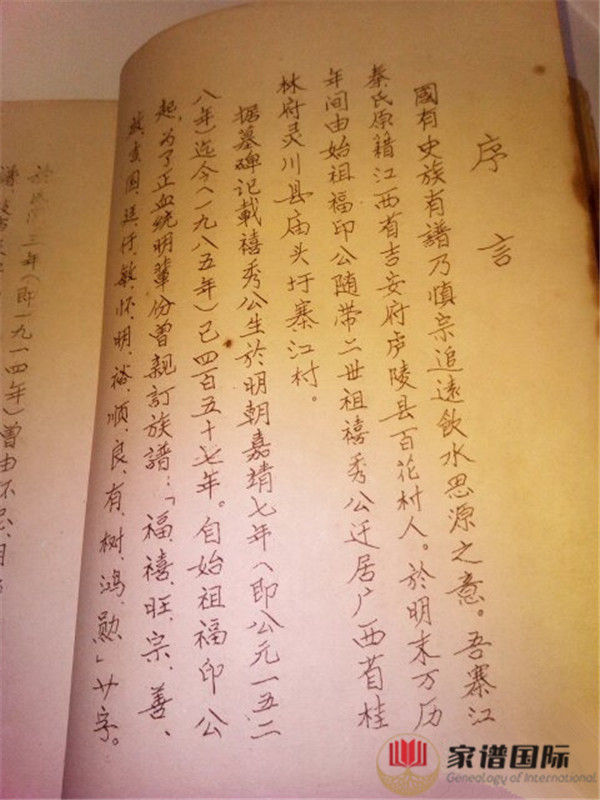 序言
國有史族有譜乃慎宗追遠飲水思源之意。吾寨江
秦氏原籍江西省吉安府庐陵县百花村人。於明末万历
年间由始祖福印公随带二世祖禧秀公迁居广西省桂
林府灵川县庙头圩寨江村。
据墓碑记載禧秀公生於明朝嘉靖七年(即公元一五二
八年)迄今(一九八五年)已四百五十七年。自始祖福印公
起,为了正血統明輩份曾親訂族譜:「福、禧、旺、宗、善、
国、廷、仔、敏、怀、明、裕、顺、良、有、树、鸿、勋」廿字。
於民国三年(即一九一四年)曾由不
家谱国际
Genealogy of International